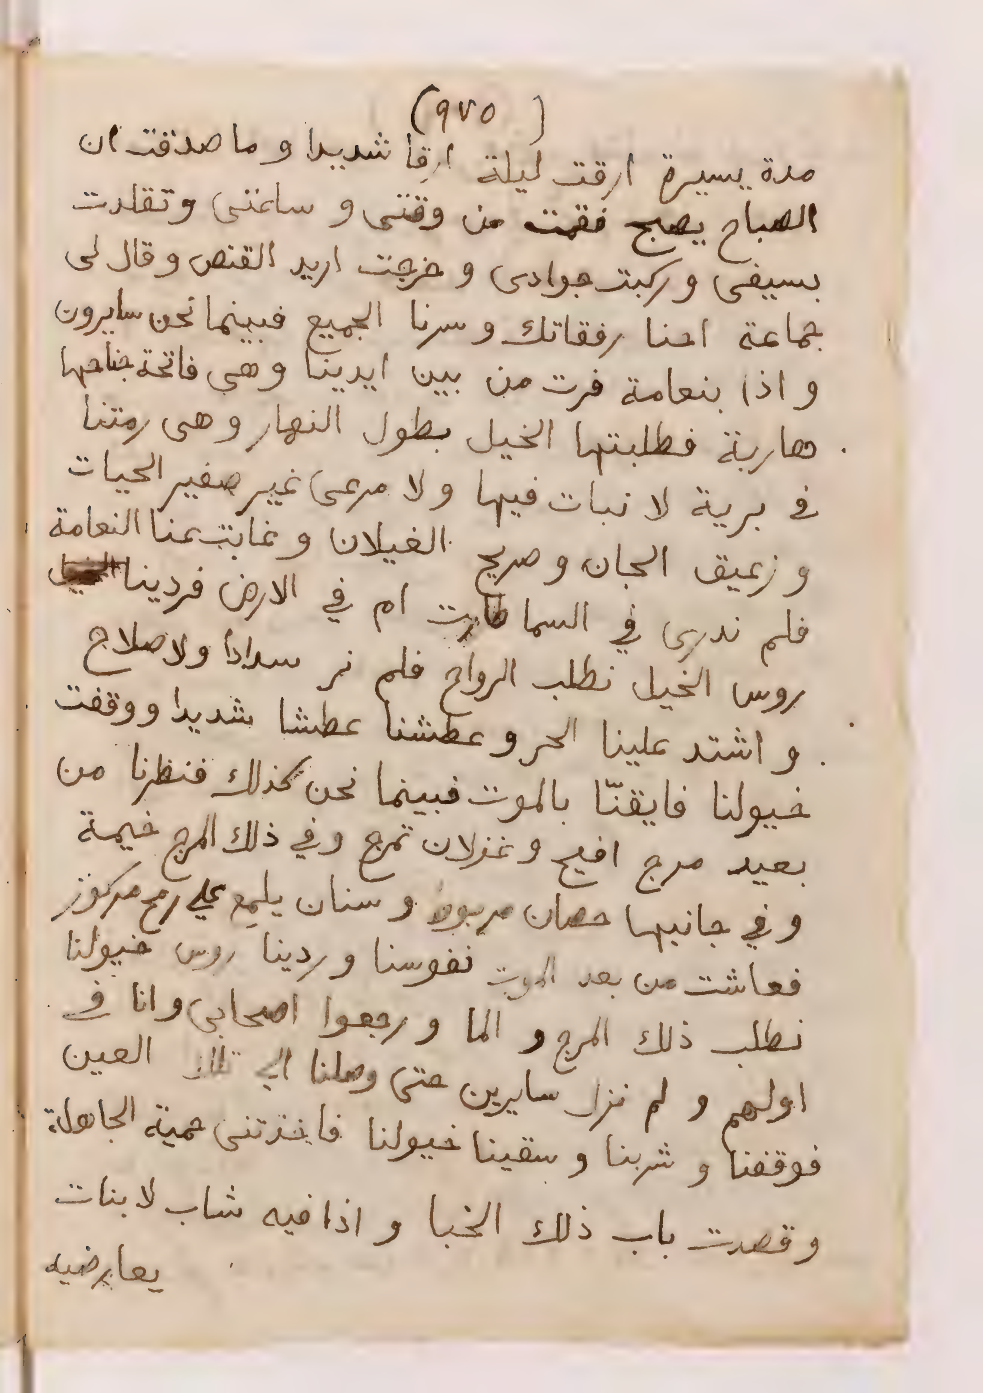 (٩٧٥)
مدة يسيرة ارقت ليلة ارقا شديدا و ما صدقت ان
الصباح يصبح فقمت من وقتى و ساعتى وتقلدت
بسيفى وركبت جوادى و خرجت اريد القنص وقال لى
جماعة احنا رفقاتك وسرنا الجميع فبينما نحن سايرون
و اذا بنعامة فرت من بين ايدينا وهى فاتحة جناحها
هاربة فطلبتها الخيل بطول النهار وهى رمتنا
فى برية لا نبات فيها ولا مرعى غير صفير الحيات
و زعيق الجان وصريح الغيلان وغابت عنا النعامة
فلم ندرى في السما طارت ام في الارض فردينا
روس الخيل نطلب الرواح فلم نر سدادا ولاصلاح
و اشتد علينا الحر وعطشنا عطشا شديدا ووقفت
خيولنا فايقنّا بالموت فبينما نحن كذلك فنظرنا من
بعيد مرج افيح وغزلان تمرح وفي ذلك المرج خيمة
وفي جانبها حصان مربوط وسنان يلمع على رمح مركوز
فعاشت من بعد الموت نفوسنا وردينا روس خيولنا
نطلب ذلك المرج و الما ورجعوا اصحابى وانا فى
اولهم و لم نزل سايرين حتى وصلنا الى تلك العين
فوقفنا و شربنا و سقينا خيولنا فاخذتنى حمية الجاهلية
وقصدت باب ذلك الخبا و اذا فيه شاب لا بنات
يعارضيه